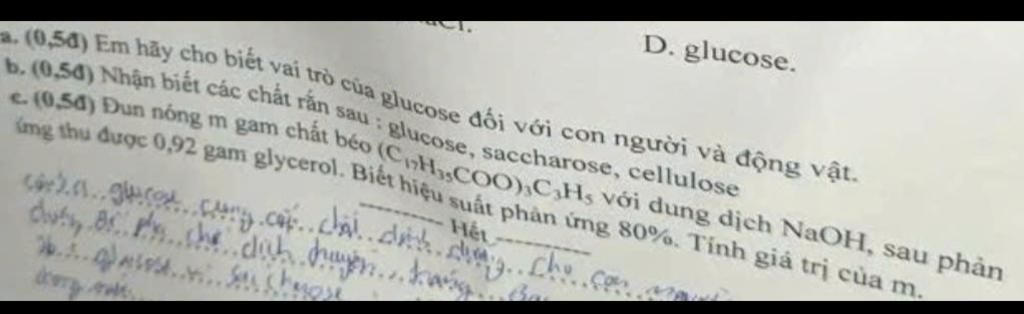 D. glucose.
a. (0,5đ) Em hãy cho biết vai trò của glucose đối với con người và động vật.
b. (0,5đ) Nhận biết các chất rắn sau : glucose, saccharose, cellulose
c. (0,5đ) Đun nóng m gam chất béo (C₁₇H₃₅COO)₃C₃H₅ với dung dịch NaOH, sau phản
ứng thu được 0,92 gam glycerol. Biết hiệu suất phản ứng 80%. Tính giá trị của m.
---------- Hết ----------
glucose cung cấp chất dinh dưỡng cho con người
chế dịch truyền tráng
glucose saccharose